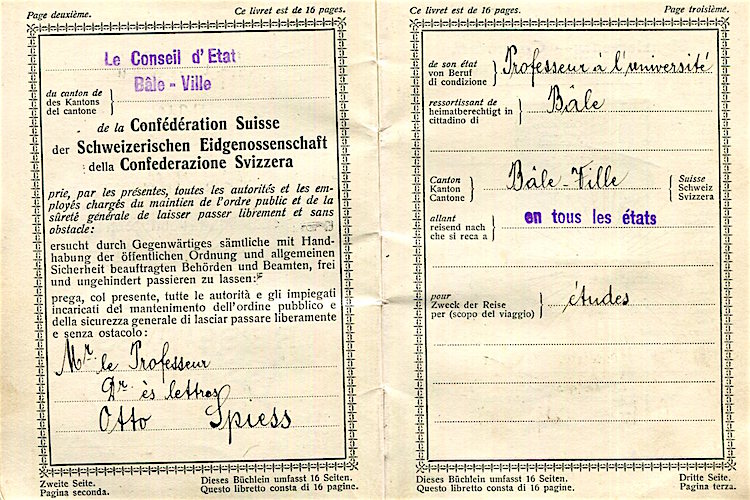 Page deuxième.
Ce livret est de 16 pages.
Le Conseil d'Etat
Bâle - Ville
du canton de
des Kantons
del cantone
de la Confédération Suisse
der Schweizerischen Eidgenossenschaft
della Confederazione Svizzera
prie, par les présentes, toutes les autorités et les em-
ployés chargés du maintien de l'ordre public et de la
sûreté générale de laisser passer librement et sans
obstacle:
ersucht durch Gegenwärtiges sämtliche mit Hand-
habung der öffentlichen Ordnung und allgemeinen
Sicherheit beauftragten Behörden und Beamten, frei
und ungehindert passieren zu lassen:
prega, col presente, tutte le autorità e gli impiegati
incaricati del mantenimento dell'ordine pubblico e
della sicurezza generale di lasciar passare liberamente
e senza ostacolo:
Mr. le Professeur
Dr. ès lettres
Otto Spiess
Zweite Seite.
Pagina seconda.
Dieses Büchlein umfasst 16 Seiten.
Questo libretto consta di 16 pagine.
Ce livret est de 16 pages.
Page troisième.
de son état
von Beruf
di condizione
Professeur à l'université
ressortissant de
heimatberechtigt in
cittadino di
Bâle
Canton
Kanton
Cantone
Bâle-Ville
Suisse
Schweiz
Svizzera
allant
reisend nach
che si reca a
en tous les états
pour
Zweck der Reise
per (scopo del viaggio)
études
Dieses Büchlein umfasst 16 Seiten.
Questo libretto consta di 16 pagine.
Dritte Seite.
Pagina terza.